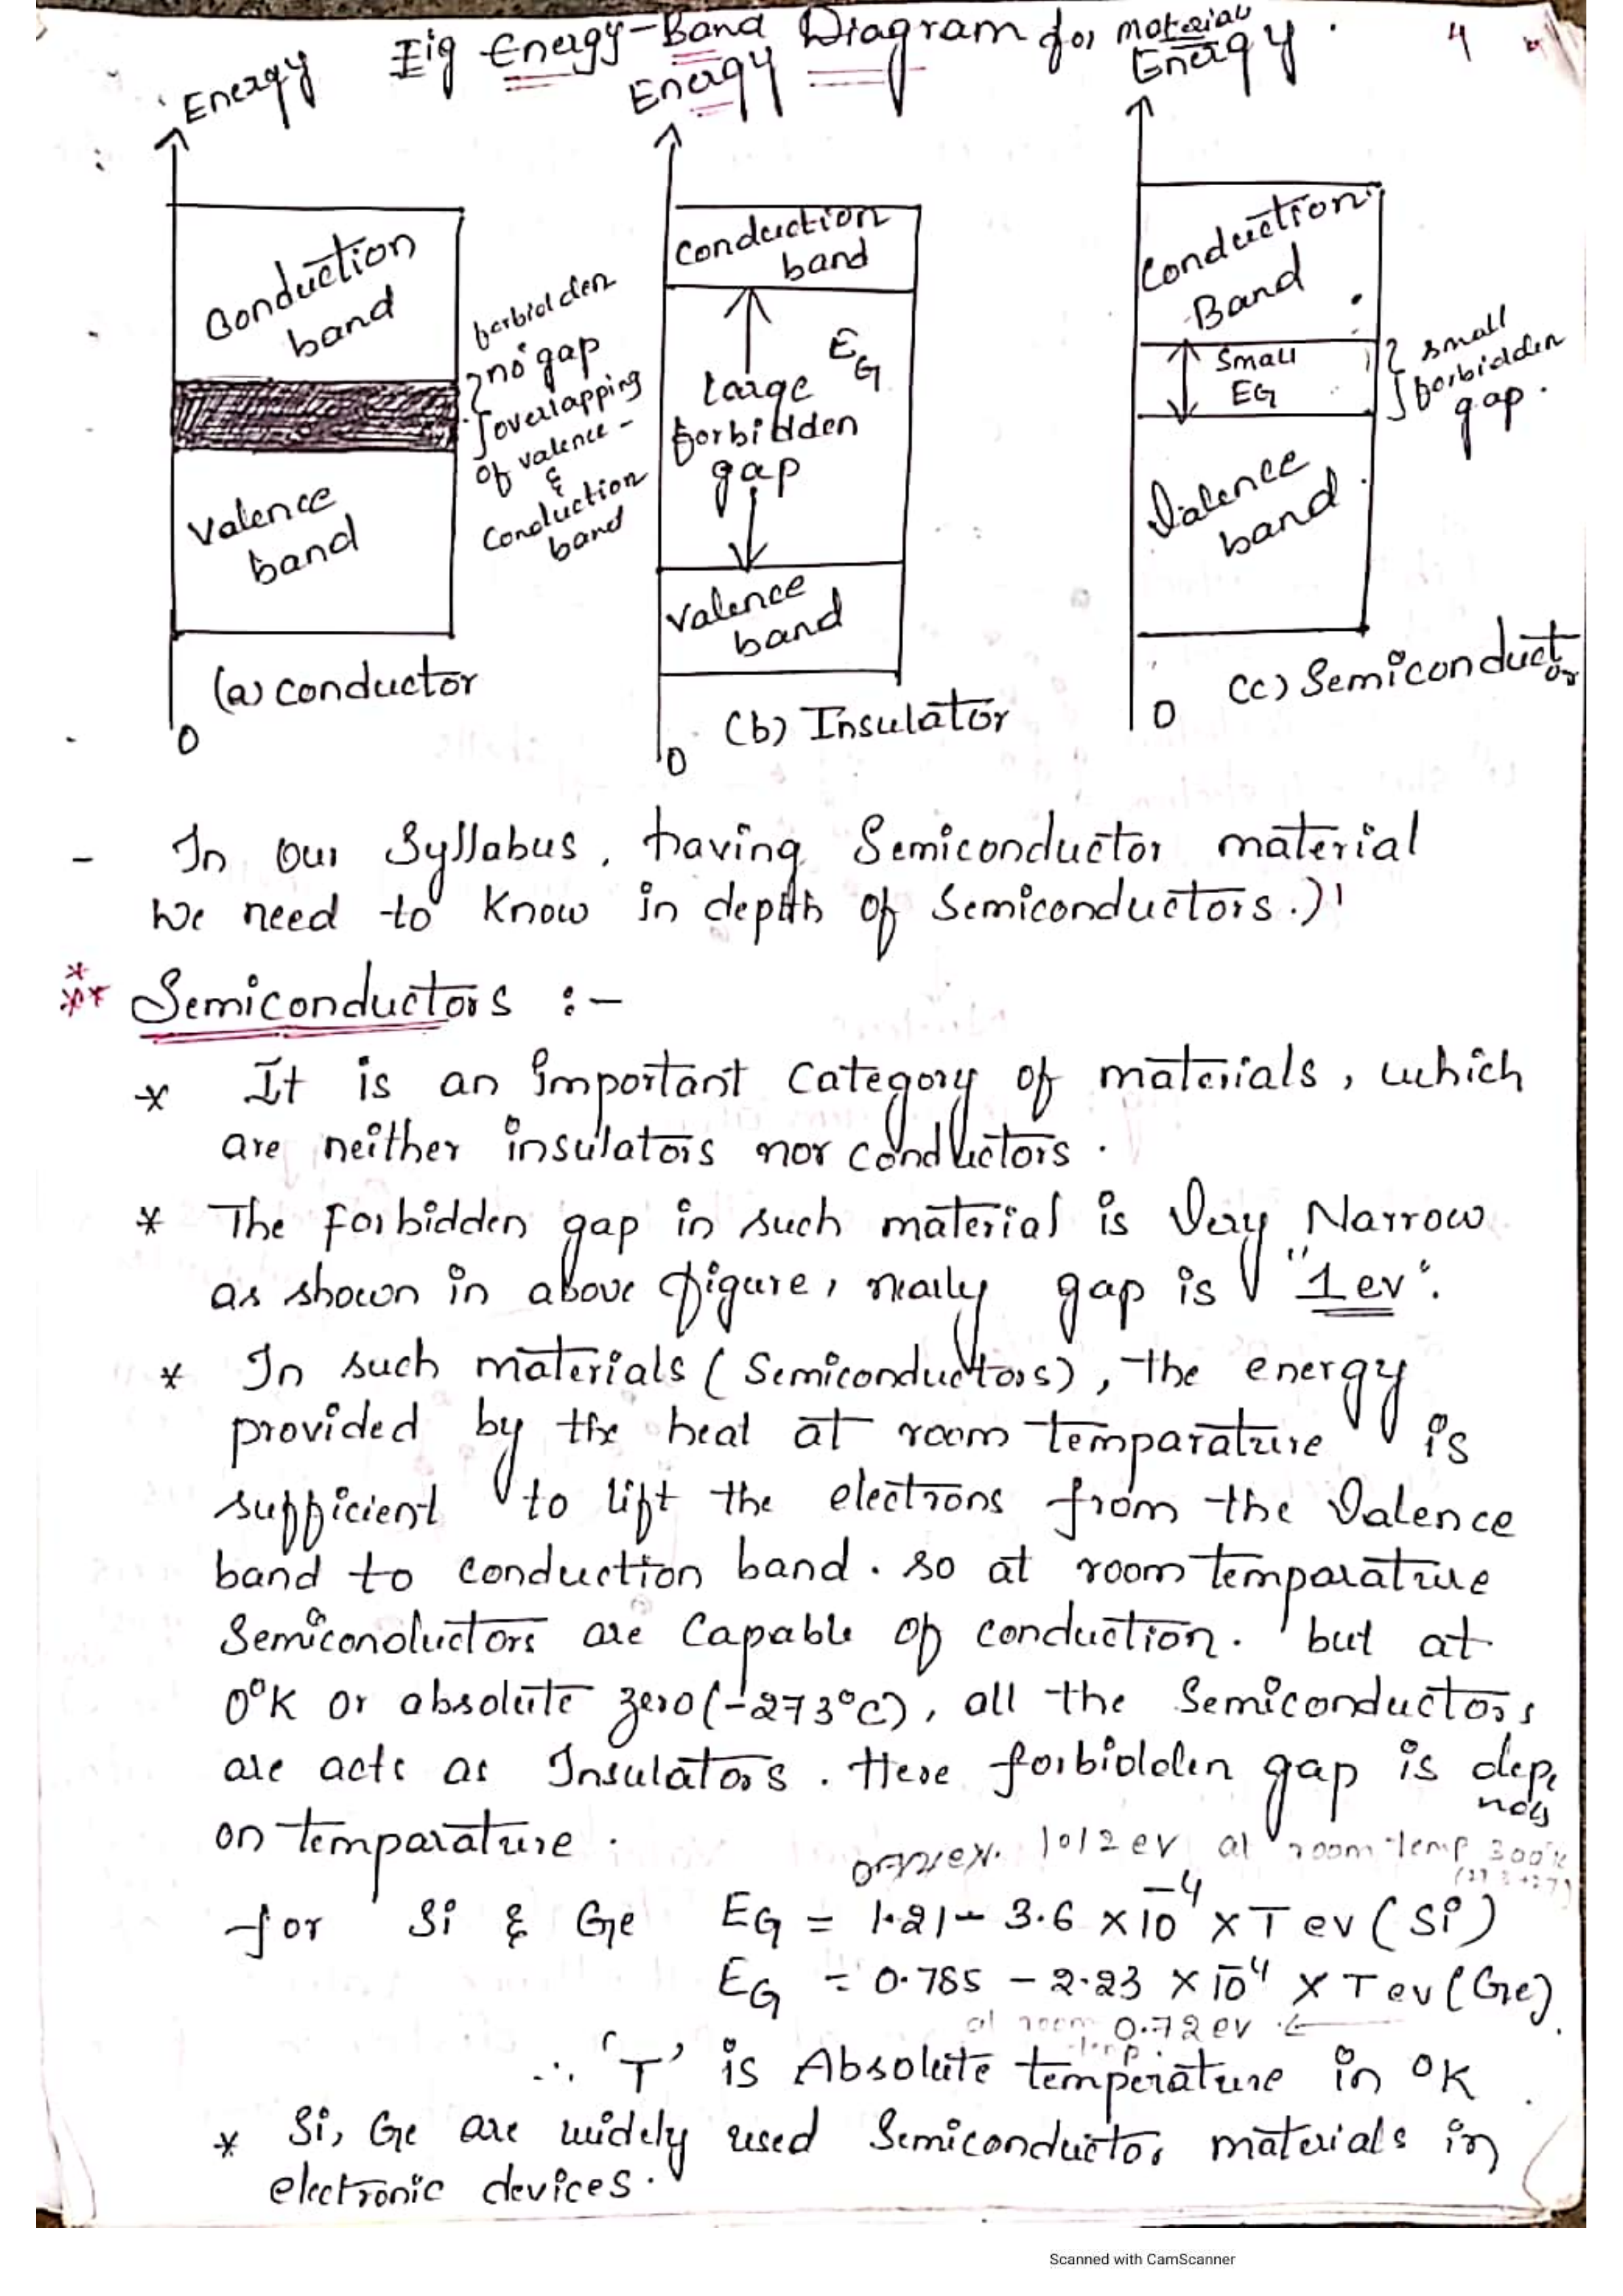 Fig Energy-Band Diagram for material
4
Energy
Energy
Energy
Conduction
band
Valence
band
forbidden
no gap
overlapping
of valence -
&
Conduction
band
(a) conductor
0
Conduction
band
EG
large
forbidden
gap
Valence
band
(b) Insulator
0
Conduction
Band
Small
EG
small
forbidden
gap.
Valence
band
(c) Semiconduct
or
0
- In our Syllabus, having Semiconductor material
We need to know in depth of Semiconductors.)
** Semiconductors :-
* It is an important Category of materials, which
are neither insulators nor conductors.
* The forbidden gap in such material is Very Narrow
as shown in above figure, nearly gap is "1ev".
* In such materials (Semiconductors), the energy
provided by the heat at room temparature is
sufficient to lift the electrons from the Valence
band to conduction band. so at room temparature
Semiconductors are Capable of conduction. but at
0°K or absolute zero(-273°C), all the Semiconductors
are acts as Insulators. Here forbidden gap is depe
nds
on temparature.
1012 ev at room temp 300°k
for Si & Ge EG = 1.21 - 3.6 x 10^-4 x T ev (Si)
EG = 0.785 - 2.23 x 10^-4 x T ev (Ge).
at room 0.72 ev ←
temp.
∴ 'T' is Absolute temperature in °K.
* Si, Ge are widely used Semiconductor materials in
electronic devices.
Scanned with CamScanner